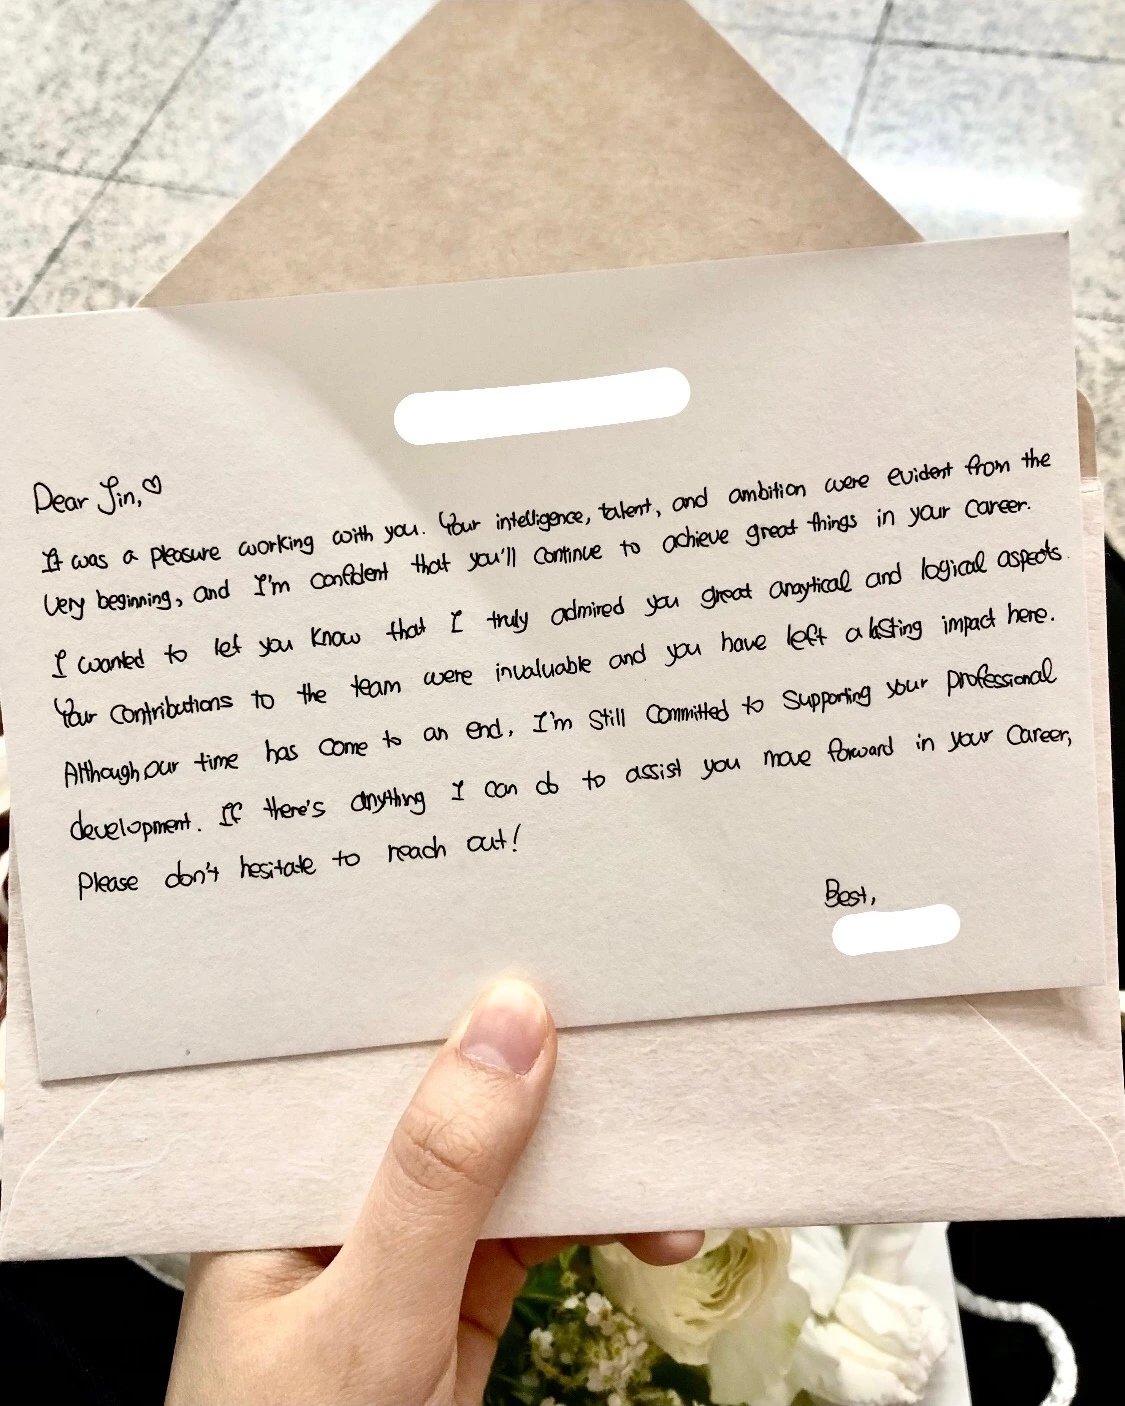 Dear Jin,♡
It was a pleasure working with you. Your intelligence, talent, and ambition were evident from the
very beginning, and I'm confident that you'll continue to achieve great things in your career.
I wanted to let you know that I truly admired you great anaytical and logical aspects.
Your contributions to the team were invaluable and you have left a lasting impact here.
Although our time has come to an end, I'm still committed to supporting your professional
development. If there's anything I can do to assist you move forward in your career,
please don't hesitate to reach out!
Best,